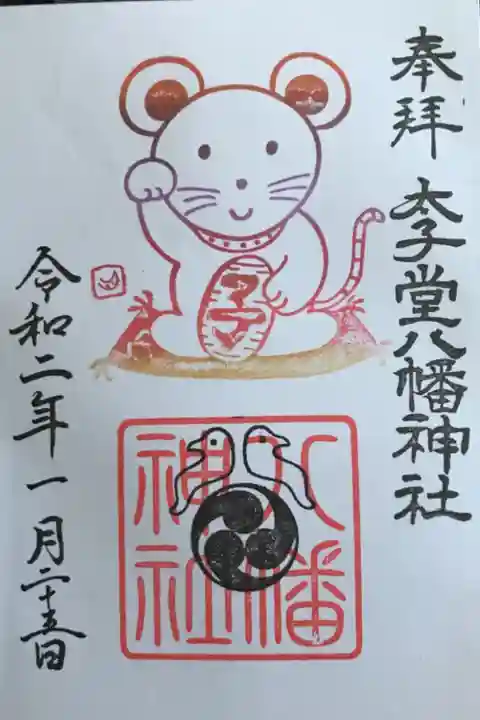 奉拝 太子堂八幡神社
八幡
神社
令和二年一月二十五日